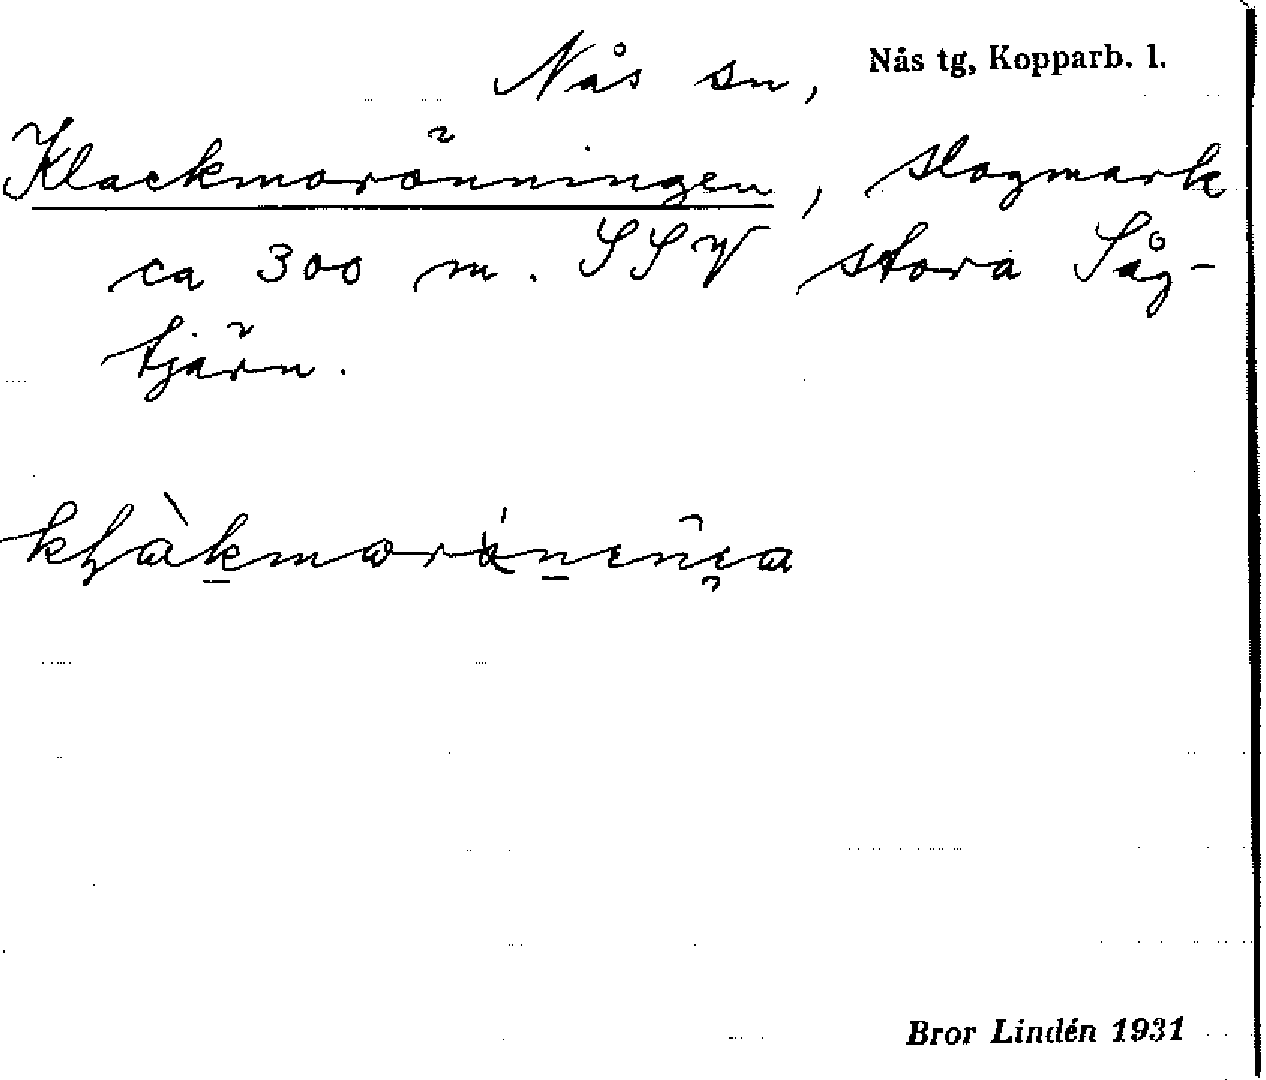 Nås sn, Nås tg, Kopparb. l.
Klackmorönningen, slogmark
ca 300 m. SSV stora Såg-
tjärn.
Bror Lindén 1931